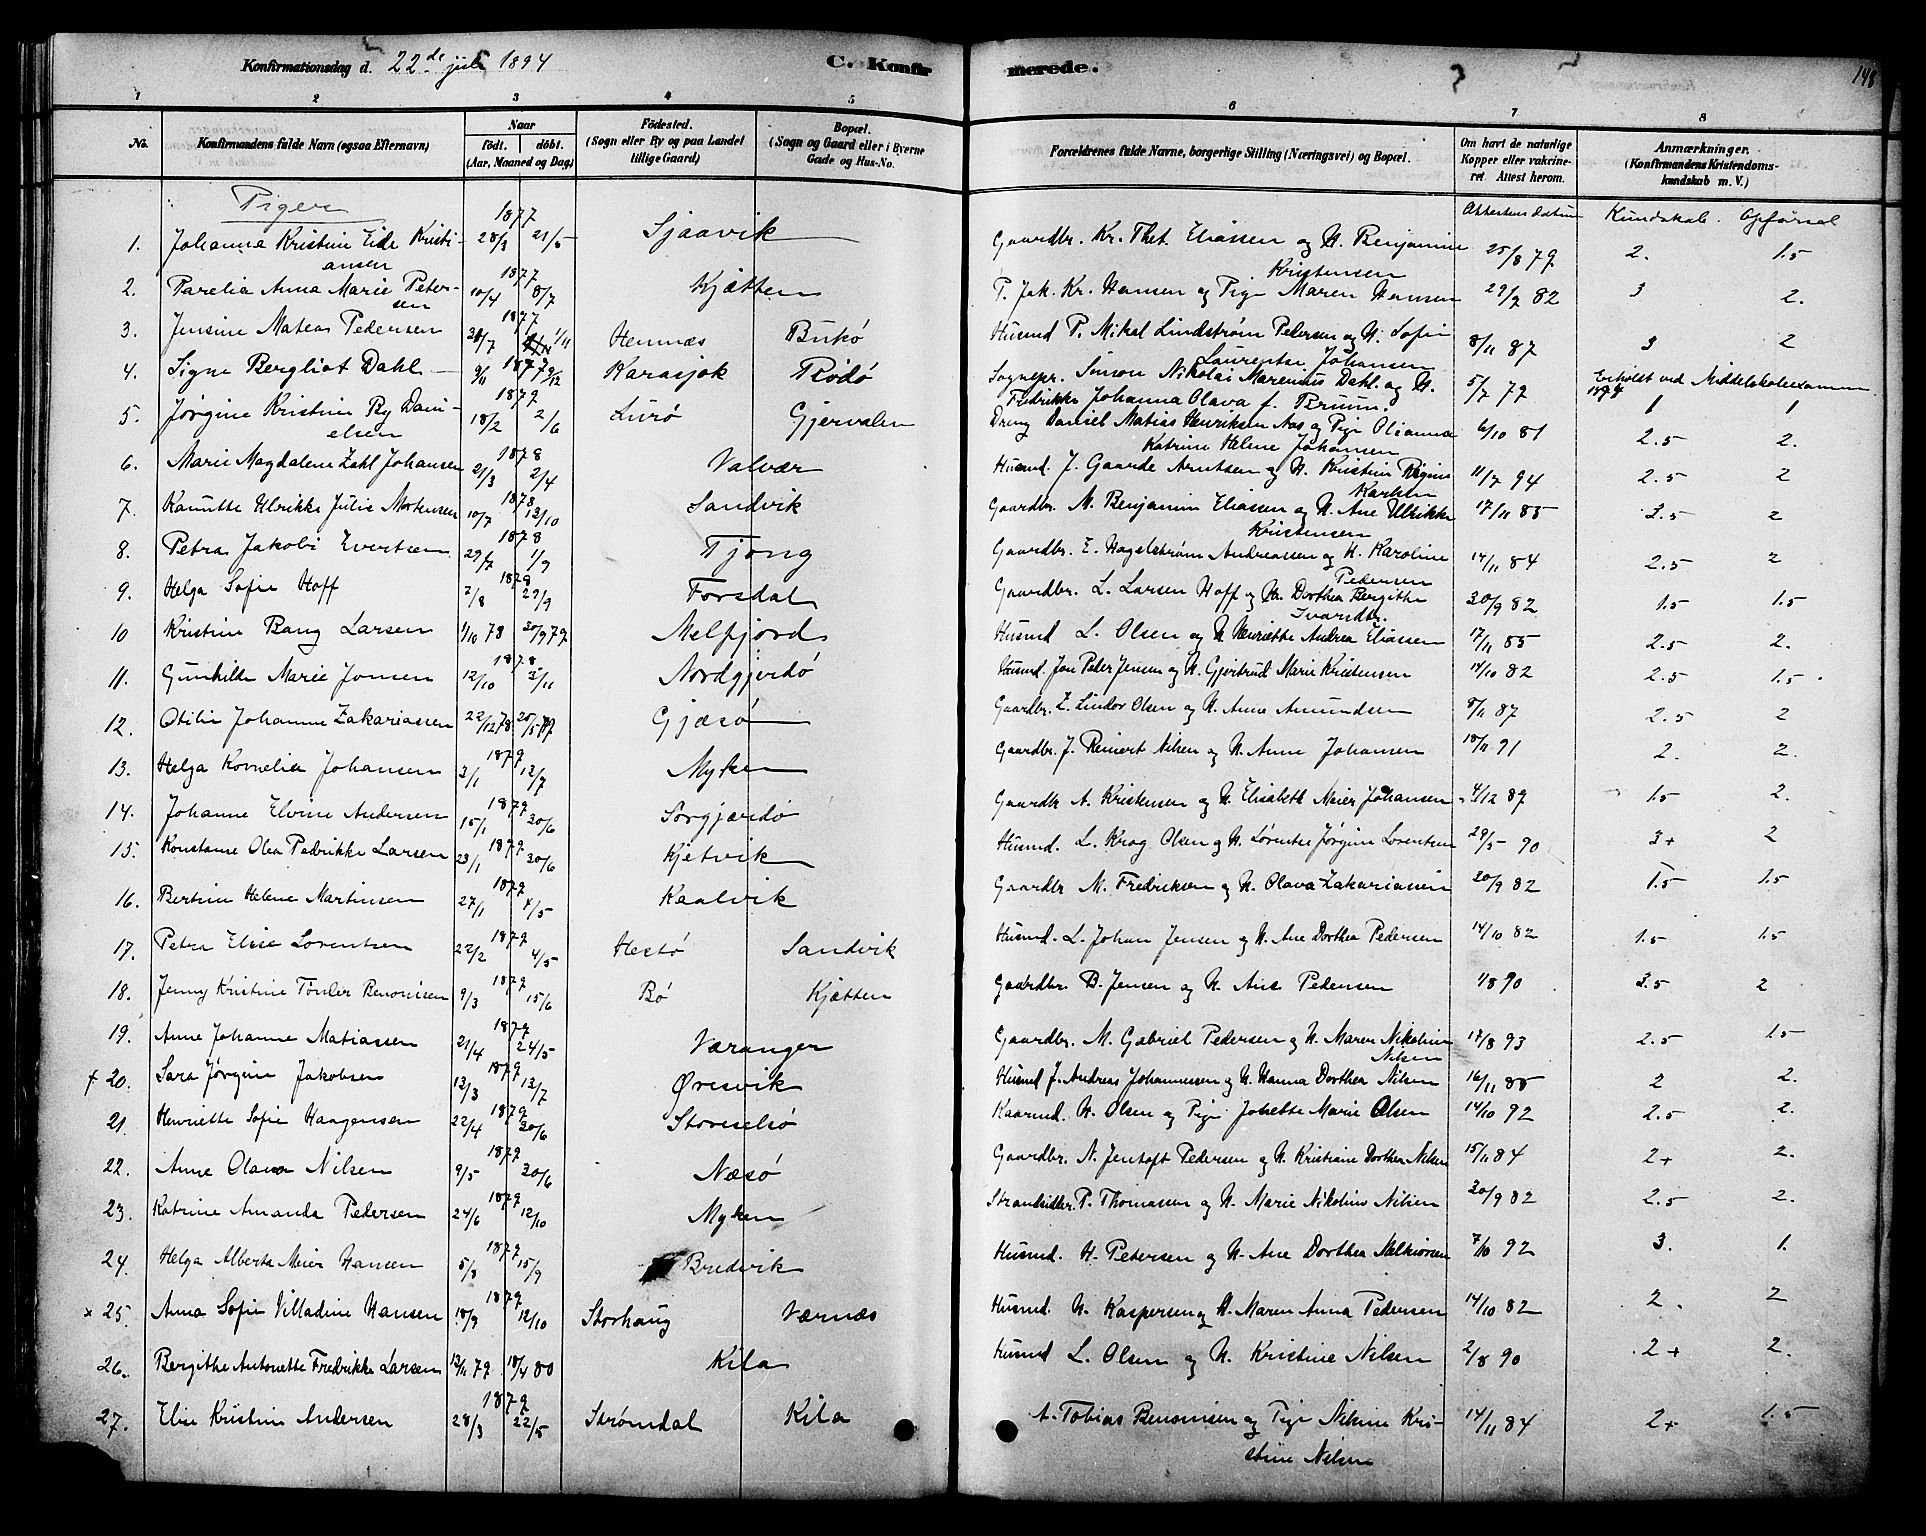 Konfirmationsdag d. 22de juli 1894 C. Konfirmerede. 148
1 2 3 4 5 6 7 8
No. Konfirmandens fulde Navn (ogsaa Efternavn) Naar födt. döbt. (Aar, Maaned og Dag) Födested. (Sogn eller By og paa Landet tillige Gaard) Bopæl. (Sogn og Gaard eller i Byerne Gade og Hus-No. Forældrenes fulde Navne, borgerlige Stilling (Næringsvei) og Bopæl. Om havt de naturlige Kopper eller vakcineret Attest herom. Anmærkninger. (Konfirmandens Kristendomskundskab m. V.)
Piger Attestens datum Kundskab. Opførsel
1. Johanna Kristine Eide Kristiansen 1877 28/3 21/5 Sjaavik Gaardbr. Kr. Thet. Eliassen og H. Benjamine Kristensen 25/8 79 2. 1.5
2. Parelia Anna Marie Petersen 1877 10/4 8/7 Kjætten P. Jak. Kr. Hansen og Pige Maren Hansen 29/9 82 3 2.
3. Jensine Mateas Pedersen 1877 1/11 Hennæs Bukø Husmd P. Mikal Lindstrøm Pedersen og H. Sofie Laurentse Johansen 8/11 87 3 2
4. Signe Bergliot Dahl 1877 9/11 9/12 Karasjok Rødø Sognepr. Simon Nikolai Marenius Dahl og H. Fredrikke Johanna Olava f. Bruun. 5/7 79 Erholdt ved Middelskoleexamen 1 1
5. Jørgine Kristine By Danielsen 1879 18/2 2/6 Lurø Gjervalen Dreng Daniel Matias Henriksen Aas og Pige Olianna Katrine Helene Johansen 6/10 81 2.5 2.
6. Marie Magdalene Zahl Johansen 1878 21/3 2/4 Valvær Husmd. J. Gaarde Arntsen og H. Kristine Regine Karlsen 11/7 94 2.5 2
7. Kanutte Ulrikke Julie Mortensen 1878 10/7 13/10 Sandvik Gaardbr. M. Benjamin Eliassen og H. Ane Ulrikke Kristensen 17/11 85 2.5 2
8. Petra Jakobi Evertsen 1878 29/7 1/9 Tjong Gaardbr. E. Hagelstrøm Andreassen og H. Karoline Pedersen 14/11 84 2.5 2
9. Helga Sofie Hoff 1878 2/8 29/9 Forsdal Gaardbr. L. Larsen Hoff og H. Dorthea Bergithe Ivarsdtr. 30/9 82 1.5 1.5
10 Kristine Bang Larsen 1/10 78 30/9 79 Melfjord Husmd L. Olsen og H Henriette Andrea Eliassen 17/11 85 2.5 2.
11. Gunhilde Marie Jonsen 1878 12/10 3/11 Nordgjerdø Husmd. Jon Peter Jensen og H. Gjertrud Marie Kristensen 14/10 82 2.5 1.5
12. Otilie Johanne Zakariassen 22/12 78 25/5 79 Gjæsø Gaardbr. Z. Lindor Olsen og H. Anne Amundsen 8/11 87 2.5 2
13. Helga Kornelia Johansen 1879 3/1 13/7 Myken Gaardbr. J. Reinert Nilsen og H. Anne Johansen 18/11 91 2. 2.
14. Johanne Elvine Andersen 1879 15/1 30/6 Sørgjærdø Gaardbr A. Kristensen og H. Elisabeth Meier Johansen 4/12 89 1.5 2.
15. Konstanse Olea Pedrikke Larsen 1879 23/1 30/6 Kjetvik Husmd. L. Krog Olsen og H. Lørentse Jørgine Lorentsen 29/5 90 3+ 2
16. Bertine Helene Martinsen 1879 27/1 4/5 Kaalvik Gaardbr M. Fredriksen og H. Olava Zakariassen 20/9 82 1.5 1.5
17. Petra Elise Lorentsen 1879 22/2 4/5 Hestø Sandvik Husmd. L. Johan Jensen og H. Ane Dorthea Pedersen 14/10 82 1.5 1.5
18. Jenny Kristine Tønder Benonisen 1879 9/3 15/6 Bø Kjætten Gaardbr. B. Jensen og H. Ane Pedersen 1/8 90 3.5 2
19. Anne Johanne Matiassen 1879 21/4 24/5 Væranger Gaardbr. M. Gabriel Pedersen og H. Maren Nikoline Nilsen 17/8 93 2.5 1.5
+ 20. Sara Jørgine Jakobsen 1879 13/3 13/7 Øresvik Husmd J. Andreas Johannesen og H. Hanna Dorthea Nilsen 16/11 88 2 2.
21. Henriette Sofie Haagensen 1879 22/4 30/6 Storeselsø Kaarmd. H. Olsen og Pige Johette Marie Olsen 14/10 92 2.5 2.
22. Anne Olava Nilsen 1879 9/5 30/6 Næsø Gaardbr. N. Jentoft Pedersen og H. Kristiane Dorthea Nilsen 15/11 84 2+ 2.
23. Katrine Amanda Pedersen 1879 24/6 12/10 Myken Strandsidder P. Thomassen og H. Marie Nikoline Nilsen 30/9 82 2.5 2.
24. Helga Alberta Meier Hansen 1879 5/8 15/9 Bredvik Husmd. H. Petersen og H. Ane Dorthea Melkiorsen 7/10 92 3. 1.
× 25. Anna Sofie Villadine Hansen 1879 18/9 12/10 Storhaug Værnæs Husmd. H. Kaspersen og H. Maren Anna Pedersen 14/10 82 2. 2
26. Bergithe Antonette Fredrikke Larsen 13/11 79 18/4 80 Kila Husmd L. Olsen og H. Kristine Nilsen 2/8 90 2+ 2.
27. Elise Kristine Andersen 1879 28/3 22/5 Strømdal Kila A. Tobias Benonisen og Pige Nikine Kristine Nilsen 14/11 84 2+ 1.5